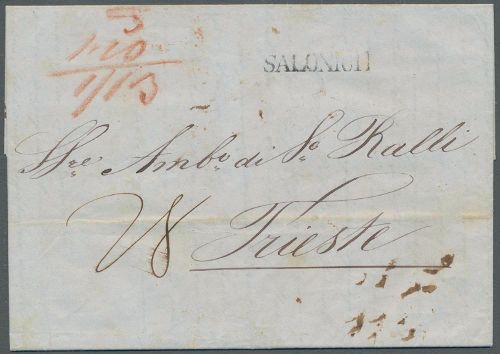 3
1.10
1/13
SALONICH
Sre. Ambo. di No. Ralli
Trieste